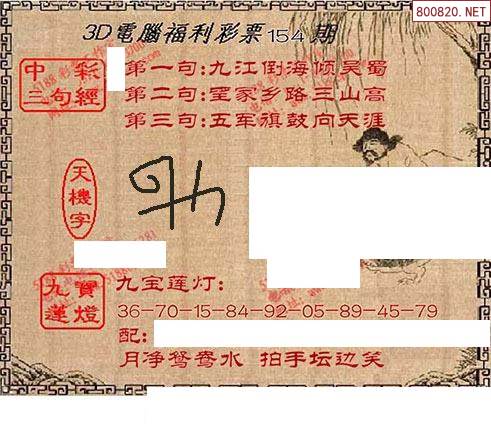 800820.NET
3D電腦福利彩票154期
中彩
三句經
第一句:九江倒海倾吴蜀
第二句:望家乡路三山高
第三句:五军旗鼓向天涯
天機字
九寶
蓮燈
九宝莲灯:
36-70-15-84-92-05-89-45-79
配:
月净鸳鸯水 拍手坛边笑